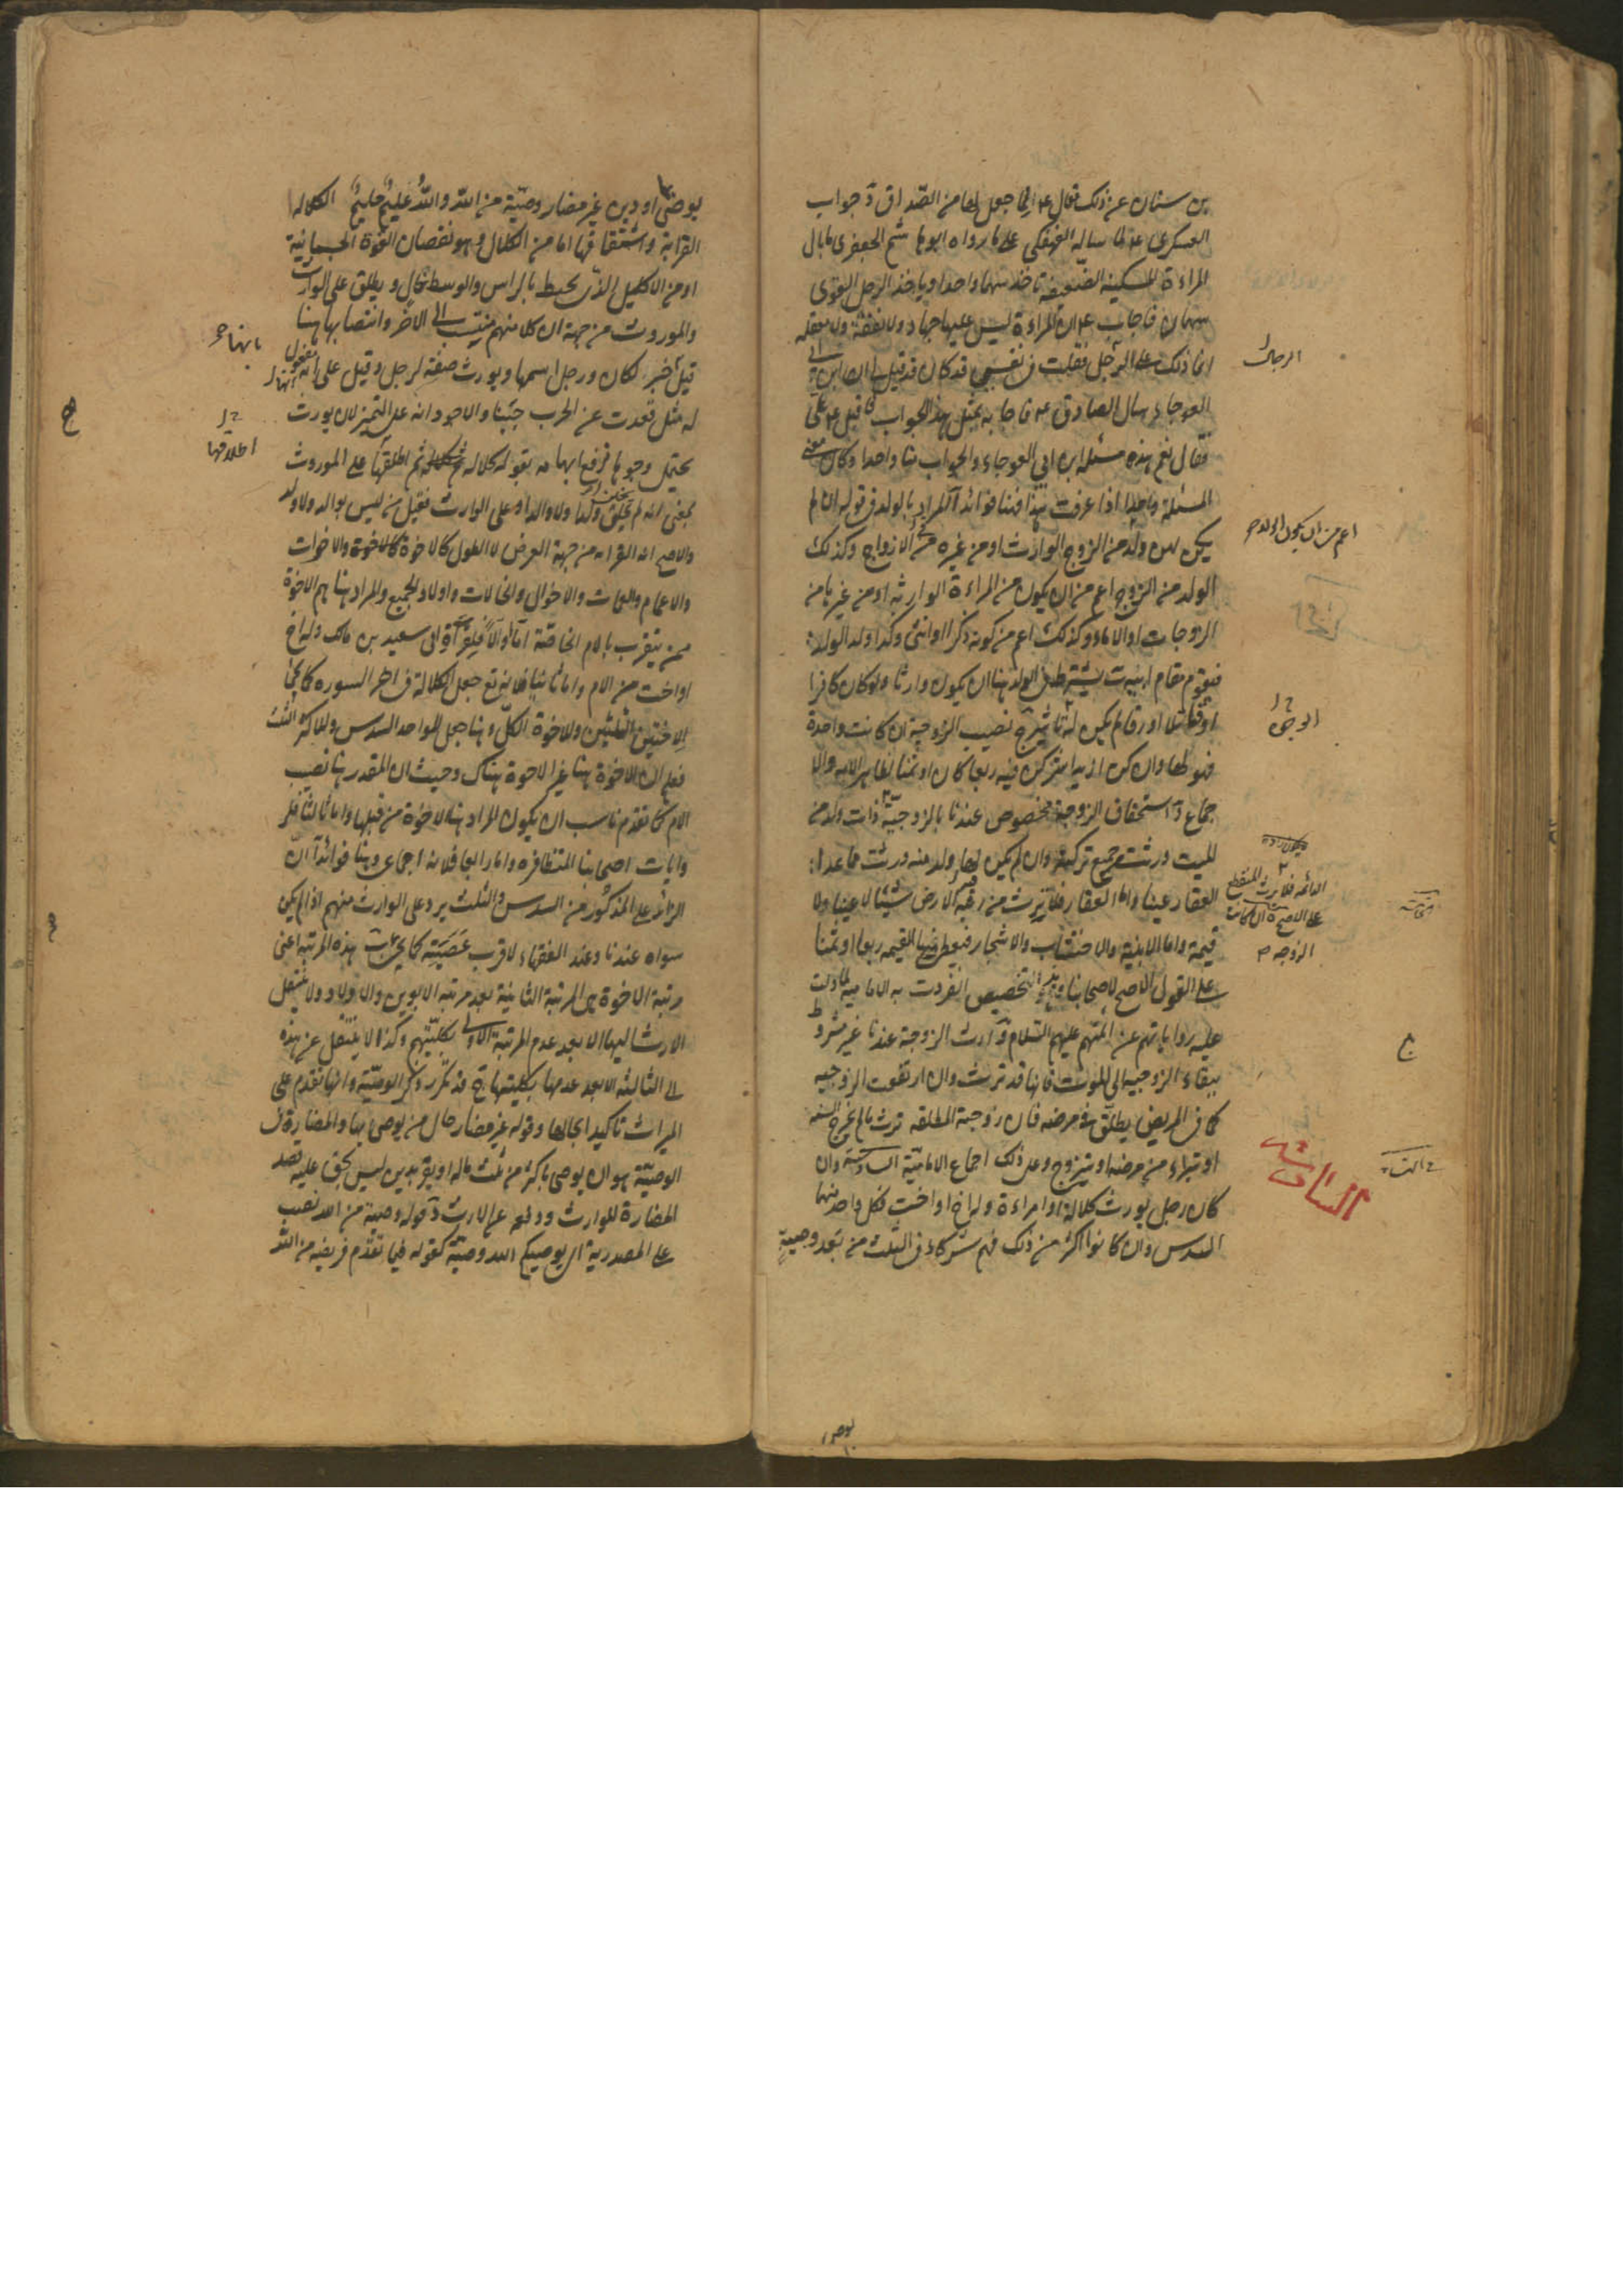 بن سنان عن ذلك فقال ع لما جعل لها من الصداق وجواب
العسكرى ع لما ساله الفهفكى على ما رواه ابو هاشم الجعفرى ما بال
المراءة المسكينة الضعيفة تاخذ سهما واحدا وياخذ الرجل القوى
سهمان فاجاب ع ان المراءة ليس عليها جهاد ولا نفقة ولا معقلة
انما ذلك على الرجل فقلت فى نفسى قد كان قد قيل لى ان ابن ابى
العوجاء سال الصادق ع فاجابه بمثل هذا الجواب فاقبل ع على
فقال نعم هذه مسئلة ابن ابى العوجاء والجواب منا واحدا وكان معنى
المسئلة واحدا اذا عرفت هذا فهنا فوائد آ المراد بالولد فى قوله ان لم
يكن لهن ولد من الزوج الوارث او من غيره من الازواج وكذلك
الولد من الزوج اعم من ان يكون من المراءة الوارثة او من غيرها من
الزوجات او الاماء وكذلك اعم من كونه ذكرا او انثى وكذا ولد الولد
فيقوم مقام ابيه ب يشترط فى الولد هنا ان يكون وارثا ولو كان كافرا
او قاتلا او رقا لم يكن له تاثير ج نصيب الزوجية ان كانت واحدة
فهو لها وان كن ازيد اشتركن فيه ربعا كان او ثمنا لظاهر الاية والا
جماع د استحقاق الزوجة مخصوص عندنا بالزوجية ذات ولد من
الميت ورثت جميع تركته وان لم يكن لها ولد منه ورثت مما عدا
العقار عينا واما العقار فلا ترث من رقبة الارض شيئا لا عينا ولا
قيمة واما الابنية والاخشاب والاشجار فيعطى فيها القيمة ربعا او ثمنا
على القول الاصح لاصحابنا وهذا التخصيص انفردت به الامامية لما دلت
عليه رواياتهم عن ائمتهم عليهم السلام و ارث الزوجة عندنا غير مشروط
ببقاء الزوجية الى الموت فانها قد ترث وان ارتفعت الزوجية
كما فى المريض يطلق فى مرضه فان زوجته المطلقة ترث ما لم يخرج السنة
او تبراء من مرضه او تتزوج وعلى ذلك اجماع الامامية السادسة وان
كان رجل يورث كلالة او امراءة وله اخ او اخت فلكل واحد منهما
السدس وان كانوا اكثر من ذلك فهم شركاء فى الثلث من بعد وصية
الرجال
اعم من ان يكون الولد
الدائمة فلا يرث المنقطع
على الاصح ان كانت
الزوجة
يوصى
يوصى بها او دين غير مضار وصية من الله والله عليم حليم الكلالة
القرابة واشتقاقها اما من الكلال وهو نقصان القوة الجسمانية
او من الاكليل الذى يحيط بالراس والوسط خال ويطلق على الوارث
والموروث من جهة ان كلا منهم منتسب الى الاخر وانتصابها هنا
قيل خبر لكان ورجل اسمها ويورث صفة لرجل وقيل على انه مفعول
له مثل قعدت عن الحرب جبنا والاجود انه على التميز لان يورث
يحتمل وجوها فرفع ابهامه بقوله كلالة ثم اطلقها على الموروث
بمعنى انه لم يخلف ولدا ولا والدا وعلى الوارث فقيل من ليس بوالد ولا ولد
والاصح انه القرابة من جهة العرض لا الطول كالاخوة والاخوات
والاعمام والعمات والاخوال والخالات واولاد الجميع والمراد هنا هم الاخوة
ممن يتقرب بالام الخاصة اما اولا فلقرآءة ابى سعيد بن مالك وله اخ
او اخت من الام واما ثانيا فلانه تع جعل الكلالة فى اخر السورة كما يجئ
للاختين الثلثين وللاخوة الكل وهنا جعل للواحد السدس وللاكثر الثلث
فعلم ان الاخوة هنا غير الاخوة هناك وحيث ان المقدر هنا نصيب
الام كما تقدم ناسب ان يكون المراد هنا الاخوة من قبلها واما ثالثا فلر
وايات اصحابنا المتظافرة واما رابعا فلانه اجماع وهنا فوائد آ ان
الزائد على المذكور من السدس والثلث يرد على الوارث منهم اذا لم يكن
سواه عندنا وعند الفقهاء لاقرب عصبة كما يجئ ب هذه المرتبة اعنى
مرتبة الاخوة هى المرتبة الثانية بعد مرتبة الابوين والاولاد ولا ينتقل
الارث اليها الا بعد عدم المرتبة الاولى بكليتهم وكذا لا ينتقل عن هذه
الى الثالثة الا بعد عدمها بكليتها ج قد تكرر ذكر الوصية وانها تقدم على
الميراث تاكيد الحالها وقوله غير مضار حال من يوصى بها والمضارة فى
الوصية هو ان يوصى باكثر من ثلث ماله او يقر بدين ليس بحق عليه قصد
المضارة للوارث ودفعه عن الارث د قوله وصية من الله نصب
على المصدرية اى يوصيكم الله وصية كقوله فيما تقدم فريضة من الله
اطلاقها